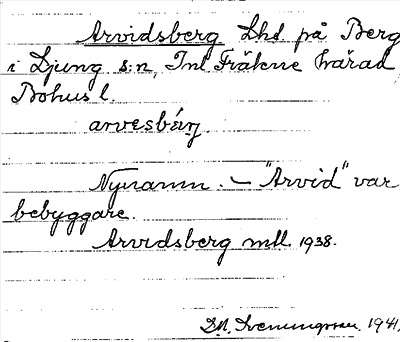 Arvidsberg Lhd. på Berg
i Ljung s:n, Inl Fräkne härad
Bohus l.
arvesbärj.
Nynamn. – "Arvid" var
bebyggare.
Arvidsberg mtl. 1938.
1941.